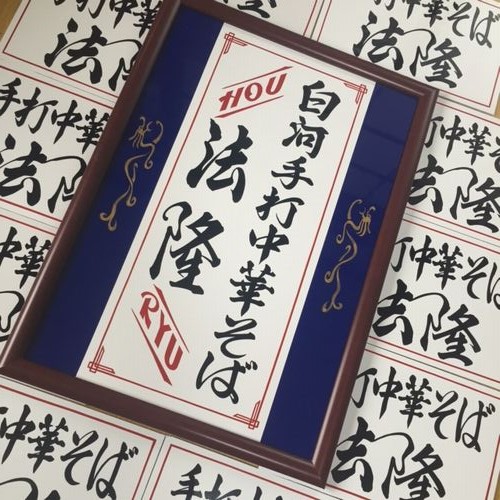 白河手打中華そば
HOU
法隆
RYU
手打中華そば
法隆
手打中華そば
法隆
華そば
隆
打中華そば
法隆
打中華そば
法隆
打中華そば
法隆
中華そば
手打中華
法隆